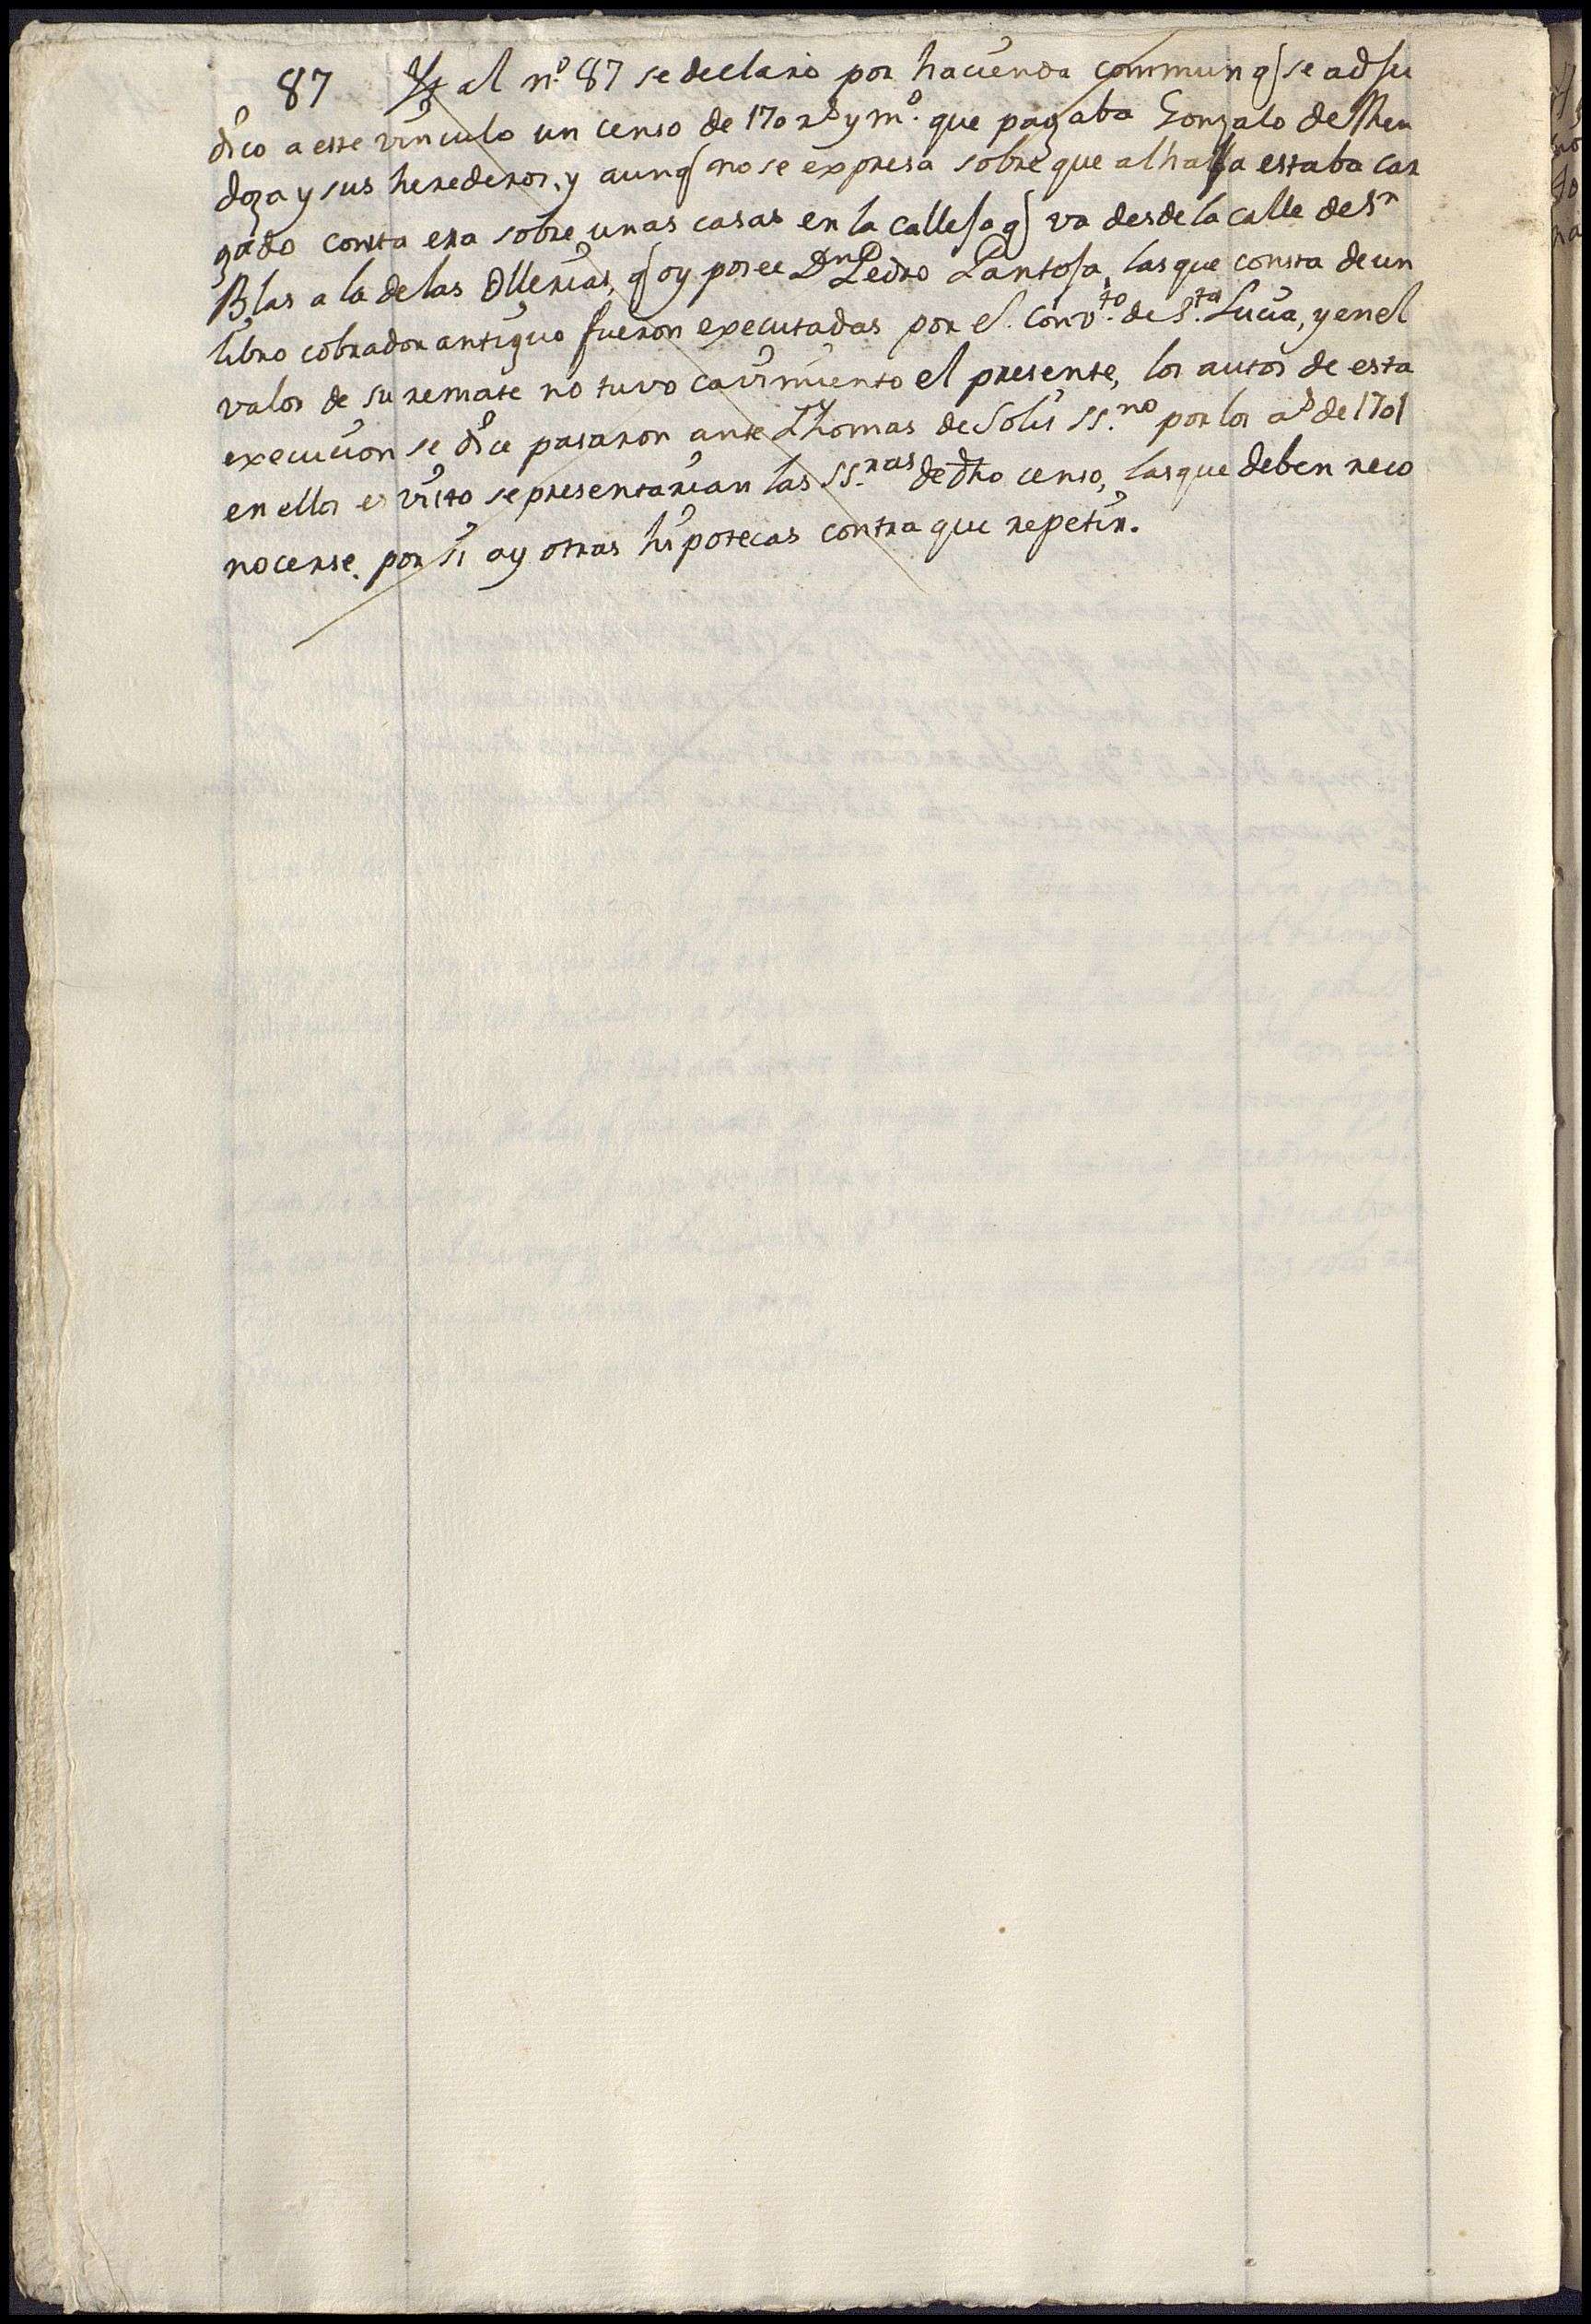 87 Yt al n.º 87 se declaró por hacienda commun q se adju
dico a este vinculo un censo de 170 rs y mº. que pagaba Gonzalo de Men
doza y sus herederos, y aunq no se expresa sobre que alhaja estaba car
gado consta era sobre unas casas en la calleja q va desde la calle de Sn
Blas a la de las Ollerias, q oy posee Dn Pedro Pantoja, las que consta de un
libro cobrador antiguo fueron executadas por el Conv.to de S.ta Lucia, y en el
valor de su remate no tuvo cavimiento el presente, los autos de esta
execucion se dice pasaron ante Thomas de Solis ss.no por los as de 1701
en ellos es visto se presentarian las ss.ras de dho censo, las que deben reco
nocerse, por si ay otras hipotecas contra que repetir.